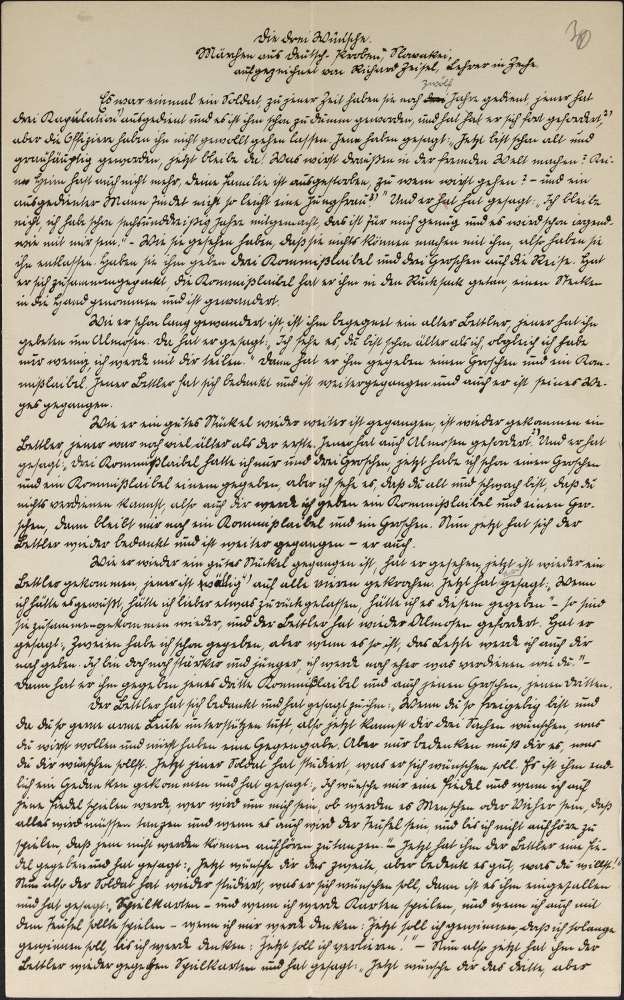 30
Die drei Wünsche.
Märchen aus Deutsch-Proben, Slowakei,
aufgezeichnet von Richard Zeisel, Lehrer in Zeche.
zwölf
Es war einmal ein Soldat, zu jener Zeit haben sie noch Jahre gedient, jener hat
drei Kapulation ausgedient und es ist ihm schon zu dumm geworden, und hat er sich fort gefordert,
aber die Offiziere haben ihn nicht gewollt gehen lassen. Jene haben gesagt: „Jetzt bist schon alt und
grauhäuptig geworden, jetzt bleibe da! Was wirst draußen in der fremden Welt machen? Kei-
ne Heim hast auch nicht mehr, deine Familie ist ausgestorben, zu wem wirst gehen? – und ein
ausgedienter Mann findet nicht so leicht eine Jungfrau." Und er hat gesagt: „Ich bleibe
nicht, ich habe schon sechsunddreißig Jahre mitgemacht, das ist für mich genug und es wird schon irgend-
wie mit mir sein." – Wie sie gesehen haben, daß sie nichts können machen mit ihm, also haben sie
ihn entlassen. Haben sie ihm geben drei Kommißlaibel und drei Groschen auf die Reise. Hat
er sich zusammengepackt, die Kommißlaibel hat er ihm in den Rucksack getan, einen Stecken
in die Hand genommen und ist gewandert.
Wie er schon lang gewandert ist, ist ihm begegnet ein alter Bettler, jener hat ihn
gebeten um Almosen. Da hat er gesagt: „Ich sehe es, du bist schon älter als ich, obgleich ich habe
nur wenig, ich werde mit dir teilen." Dann hat er ihm gegeben einen Groschen und ein Kom-
mißlaibel. Jener Bettler hat sich bedankt und ist weitergegangen und auch er ist seines We-
ges gegangen.
Wie er ein gutes Stückel wieder weiter ist gegangen, ist wieder gekommen ein
Bettler, jener war noch viel älter als der erste. Jener hat auch Almosen gefordert. Und er hat
gesagt: „Drei Kommißlaibel hatte ich nur und drei Groschen, jetzt habe ich schon einen Groschen
und ein Kommißlaibel einem gegeben, aber ich sehe es, daß du alt und schwach bist, daß du
nichts verdienen kannst, also auch dir werde ich geben ein Kommißlaibel und einen Gro-
schen, dann bleibt mir noch ein Kommißlaibel und ein Groschen. Nun jetzt hat sich der
Bettler wieder bedankt und ist weiter gegangen – er auch.
Wie er wieder ein gutes Stückel gegangen ist, hat er gesehen, jetzt ist wieder ein
Bettler gekommen, jener ist auf alle vieren gekrochen. Jetzt hat gesagt: „Wenn
ich hätte es gewußt, hätte ich lieber etwas zurückgelassen, hätte ich es diesem gegeben" – so sind
sie zusammengekommen wieder, und der Bettler hat wieder Almosen gefordert. Hat er
gesagt: „Zweien habe ich schon gegeben, aber wenn es so ist, das Letzte werde ich auch dir
noch geben. Ich bin doch noch stärker und jünger, ich werde noch eher was verdienen wie du." –
Dann hat er ihm gegeben jenes dritte Kommißlaibel und auch jenen Groschen, jenen dritten.
Der Bettler hat sich bedankt und hat gesagt zu ihm: „Wenn du so freigebig bist und
da du so gerne arme Leute unterstützen tust, also jetzt kannst dir drei Sachen wünschen, was
du wirst wollen und wirst haben eine Gegengabe. Aber nur bedenken muß dir es, was
du dir wünschen sollst. Jetzt jener Soldat hat studiert, was er sich wünschen soll. Es ist ihm end-
lich ein Gedanken gekommen und hat gesagt: „Ich wünsche mir eine Fiedel und wenn ich auf
jene Fiedel spielen werde, wer wird um mich sein, ob werden es Menschen oder Vieher sein, daß
alles wird müssen tanzen und wenn es auch wird der Teufel sein, und bis ich nicht aufhöre zu
spielen, daß jene nicht werden können aufhören zu tanzen." – Jetzt hat ihm der Bettler eine Fie-
del gegeben und hat gesagt: „Jetzt wünsche dir das zweite, aber bedenk es gut, was du willst!"
Nun also der Soldat hat wieder studiert, was er sich wünschen soll, dann ist es ihm eingefallen
und hat gesagt: „Spielkarten – und wenn ich werde Karten spielen, und wenn ich auch mit
dem Teufel sollte spielen – wenn ich mir werde denken: Jetzt soll ich gewinnen, daß ich solange
gewinnen soll, bis ich werde denken: Jetzt soll ich verlieren!" – Nun also jetzt hat ihm der
Bettler wieder gegeben Spielkarten und hat gesagt: „Jetzt wünsche dir das dritte, aber